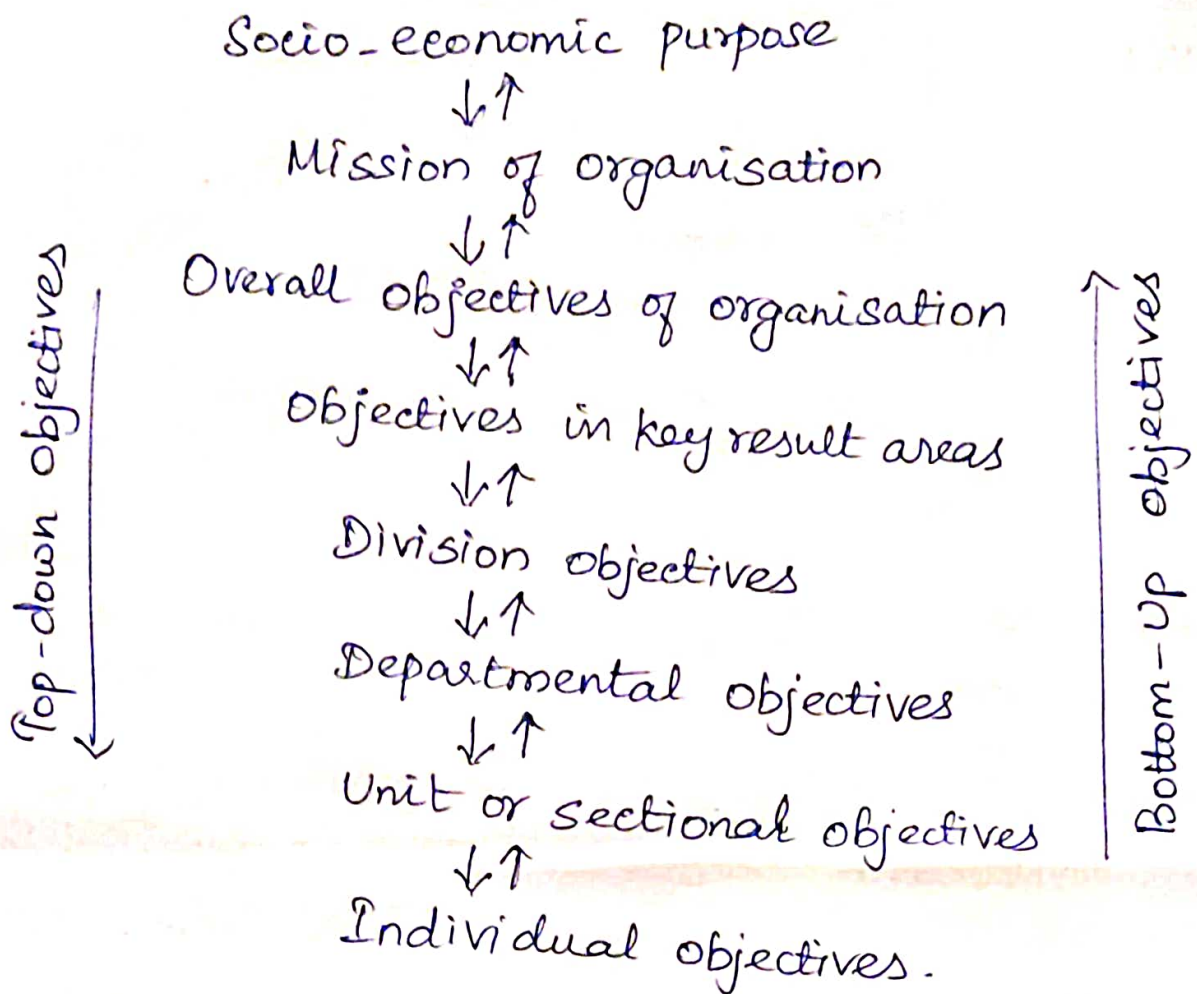 Socio-economic purpose
↓↑
Mission of organisation
↓↑
Overall objectives of organisation
↓↑
Objectives in key result areas
↓↑
Division objectives
↓↑
Departmental objectives
↓↑
Unit or sectional objectives
↓↑
Individual objectives.
Top-down objectives
Bottom-Up objectives